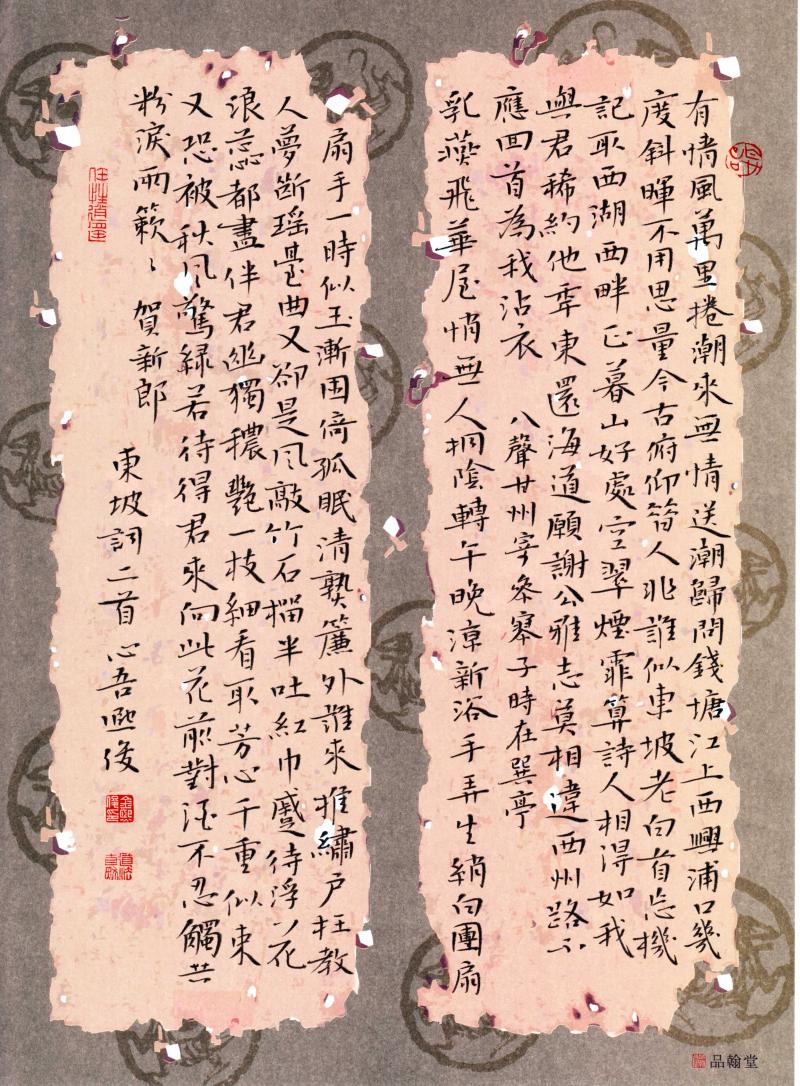 有情風萬里捲潮來無情送潮歸問錢塘江上西興浦口幾
度斜暉不用思量今古俯仰昔人非誰似東坡老白首忘機
記取西湖西畔正暮山好處空翠煙霏算詩人相得如我
與君稀約他年東還海道願謝公雅志莫相違西州路不
應回首為我沾衣 八聲甘州寄參寥子時在巽亭
乳燕飛華屋悄無人桐陰轉午晚涼新浴手弄生綃白團扇
扇手一時似玉漸困倚孤眠清熟簾外誰來推繡戶枉教
人夢斷瑤臺曲又卻是風敲竹石榴半吐紅巾蹙待浮花
浪蕊都盡伴君幽獨穠艷一枝細看取芳心千重似束
又恐被秋風驚綠若待得君來向此花前對酒不忍觸共
粉淚兩簌〻 賀新郎
東坡詞二首 心吾熙俊
品翰堂